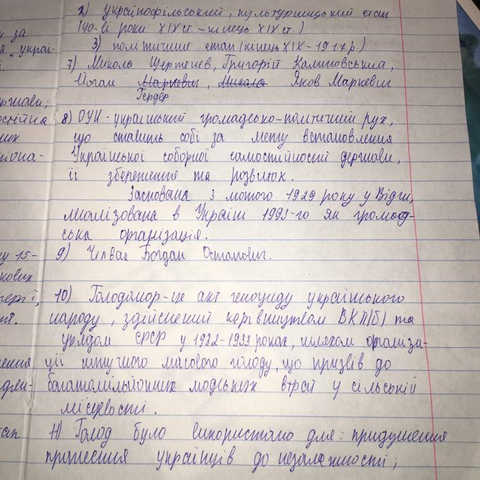 2) українофільський, культурницький етап
(40-ві роки XIX ст - кінець XIX ст.)
3) політичний етап (кінець XIX - 1917 р.)
7) Микола Цертелєв, Григорій Калиновський,
Йоган Маркевич, Микола Яков Маркевич
Гердер
8) ОУН - український громадсько-політичний рух,
що ставить собі за мету встановлення
Української соборної самостійності держави,
її збереження та розвиток.
Заснована 3 лютого 1929 року у Відні,
легалізована в Україні 1993-го як громад-
ська організація.
9) Чепвай Богдан Остапович.
10) Голодомор - це акт геноциду українського
народу, здійснений керівництвом ВКП(б) та
урядом СРСР у 1932-1933 роках, шляхом організа-
ції штучного масового голоду, що призвів до
багатомільйонних людських втрат у сільській
місцевості.
11) Голод було використано для: придушення
прагнення українців до незалежності;
у за
украї-
держави;
них
ціона-
у 15-
кових
ення
етап